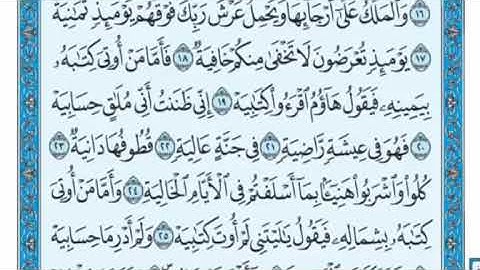 ١٦ وَالْمَلَكُ عَلَىٰ أَرْجَائِهَا وَيَحْمِلُ عَرْشَ رَبِّكَ فَوْقَهُمْ يَوْمَئِذٍ ثَمَانِيَةٌ
١٧ يَوْمَئِذٍ تُعْرَضُونَ لَا تَخْفَىٰ مِنكُمْ خَافِيَةٌ ١٨ فَأَمَّا مَنْ أُوتِيَ كِتَابَهُ
بِيَمِينِهِ فَيَقُولُ هَاؤُمُ اقْرَءُوا كِتَابِيَهْ ١٩ إِنِّي ظَنَنتُ أَنِّي مُلَاقٍ حِسَابِيَهْ
٢٠ فَهُوَ فِي عِيشَةٍ رَّاضِيَةٍ ٢١ فِي جَنَّةٍ عَالِيَةٍ ٢٢ قُطُوفُهَا دَانِيَةٌ ٢٣
كُلُوا وَاشْرَبُوا هَنِيئًا بِمَا أَسْلَفْتُمْ فِي الْأَيَّامِ الْخَالِيَةِ ٢٤ وَأَمَّا مَنْ أُوتِيَ
كِتَابَهُ بِشِمَالِهِ فَيَقُولُ يَا لَيْتَنِي لَمْ أُوتَ كِتَابِيَهْ ٢٥ وَلَمْ أَدْرِ مَا حِسَابِيَهْ